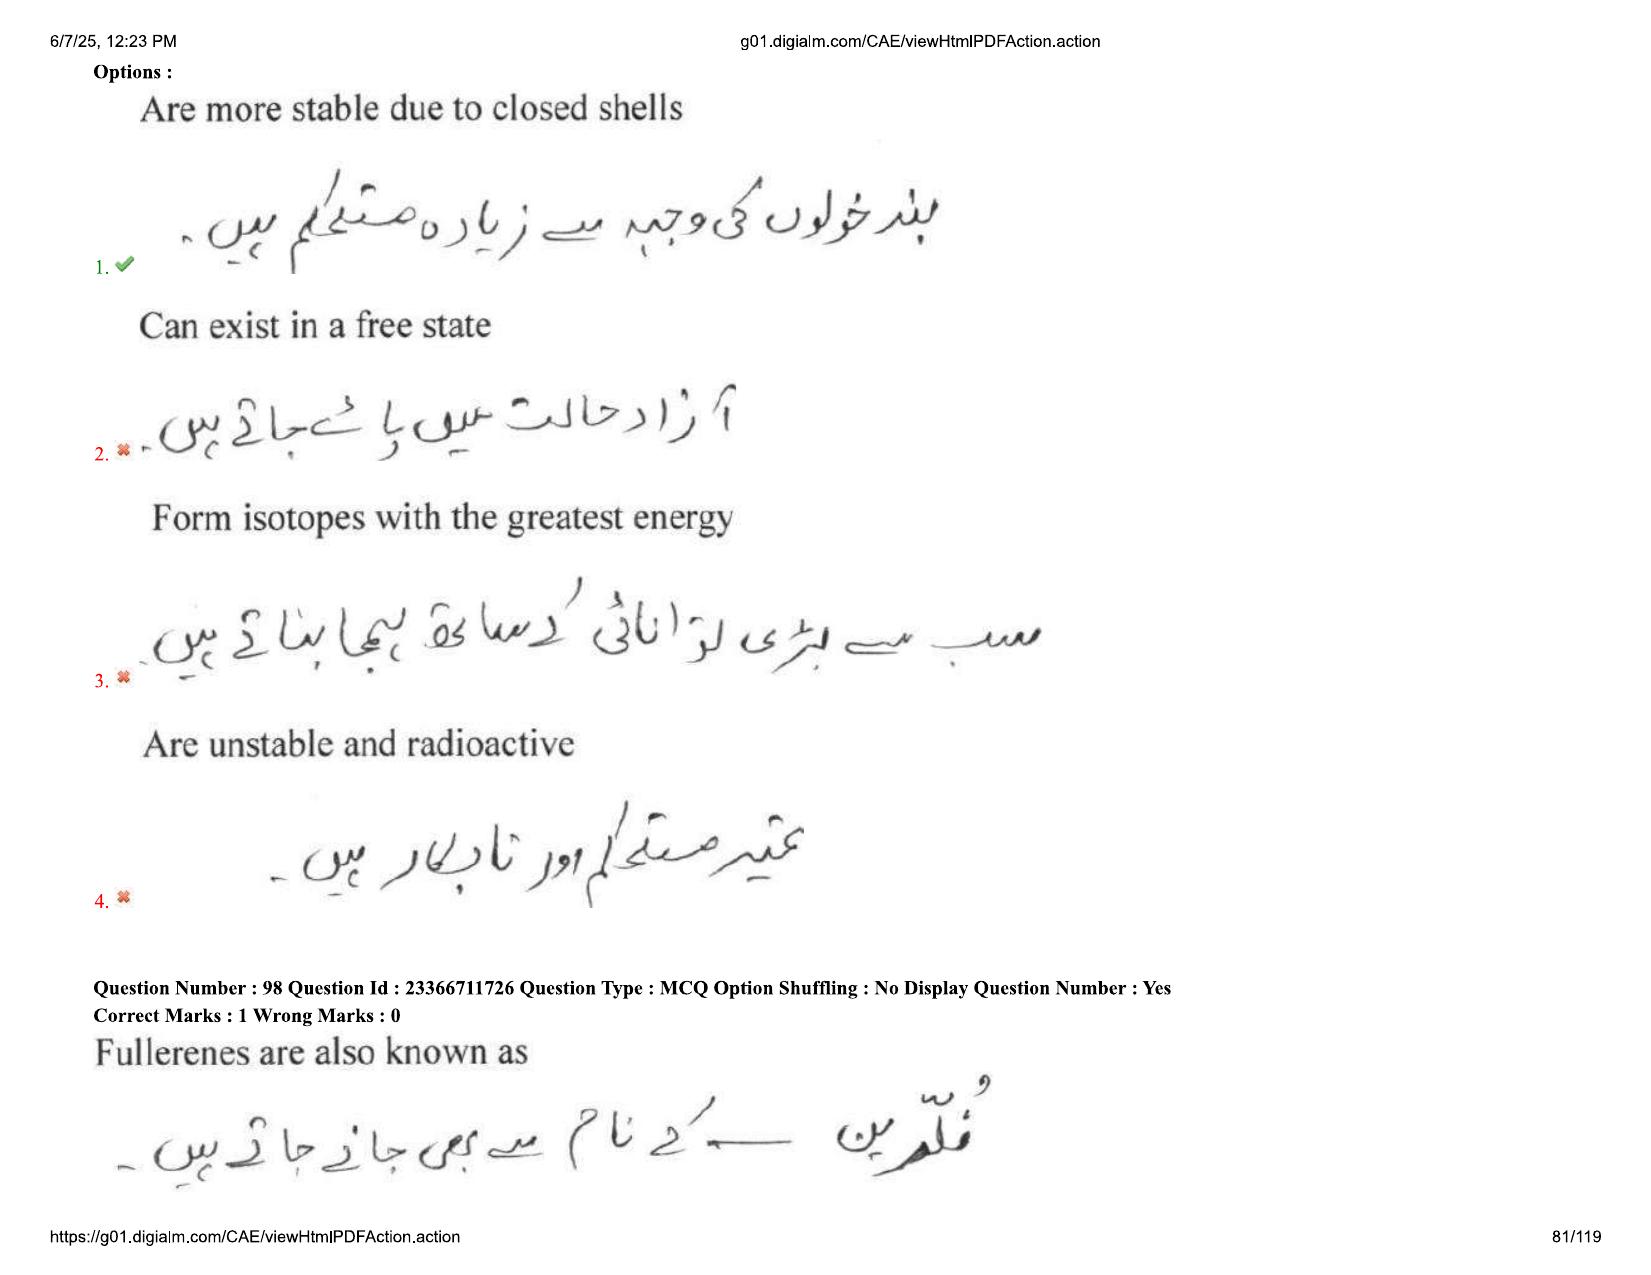 6/7/25, 12:23 PM
g01.digialm.com/CAE/viewHtmlPDFAction.action
Options :
Are more stable due to closed shells
بند خولوں کی وجہہ سے زیادہ مستحکم ہیں۔
1.
Can exist in a free state
آزاد حالت میں پائے جاتے ہیں۔
2.
Form isotopes with the greatest energy
سب سے بڑی توانائی کے ساتھ ہمجا بناتے ہیں۔
3.
Are unstable and radioactive
غیر مستحکم اور تابکار ہیں۔
4.
Question Number : 98 Question Id : 23366711726 Question Type : MCQ Option Shuffling : No Display Question Number : Yes
Correct Marks : 1 Wrong Marks : 0
Fullerenes are also known as
فُلّرین ــــ کے نام سے بھی جانے جاتے ہیں۔
https://g01.digialm.com/CAE/viewHtmlPDFAction.action
81/119